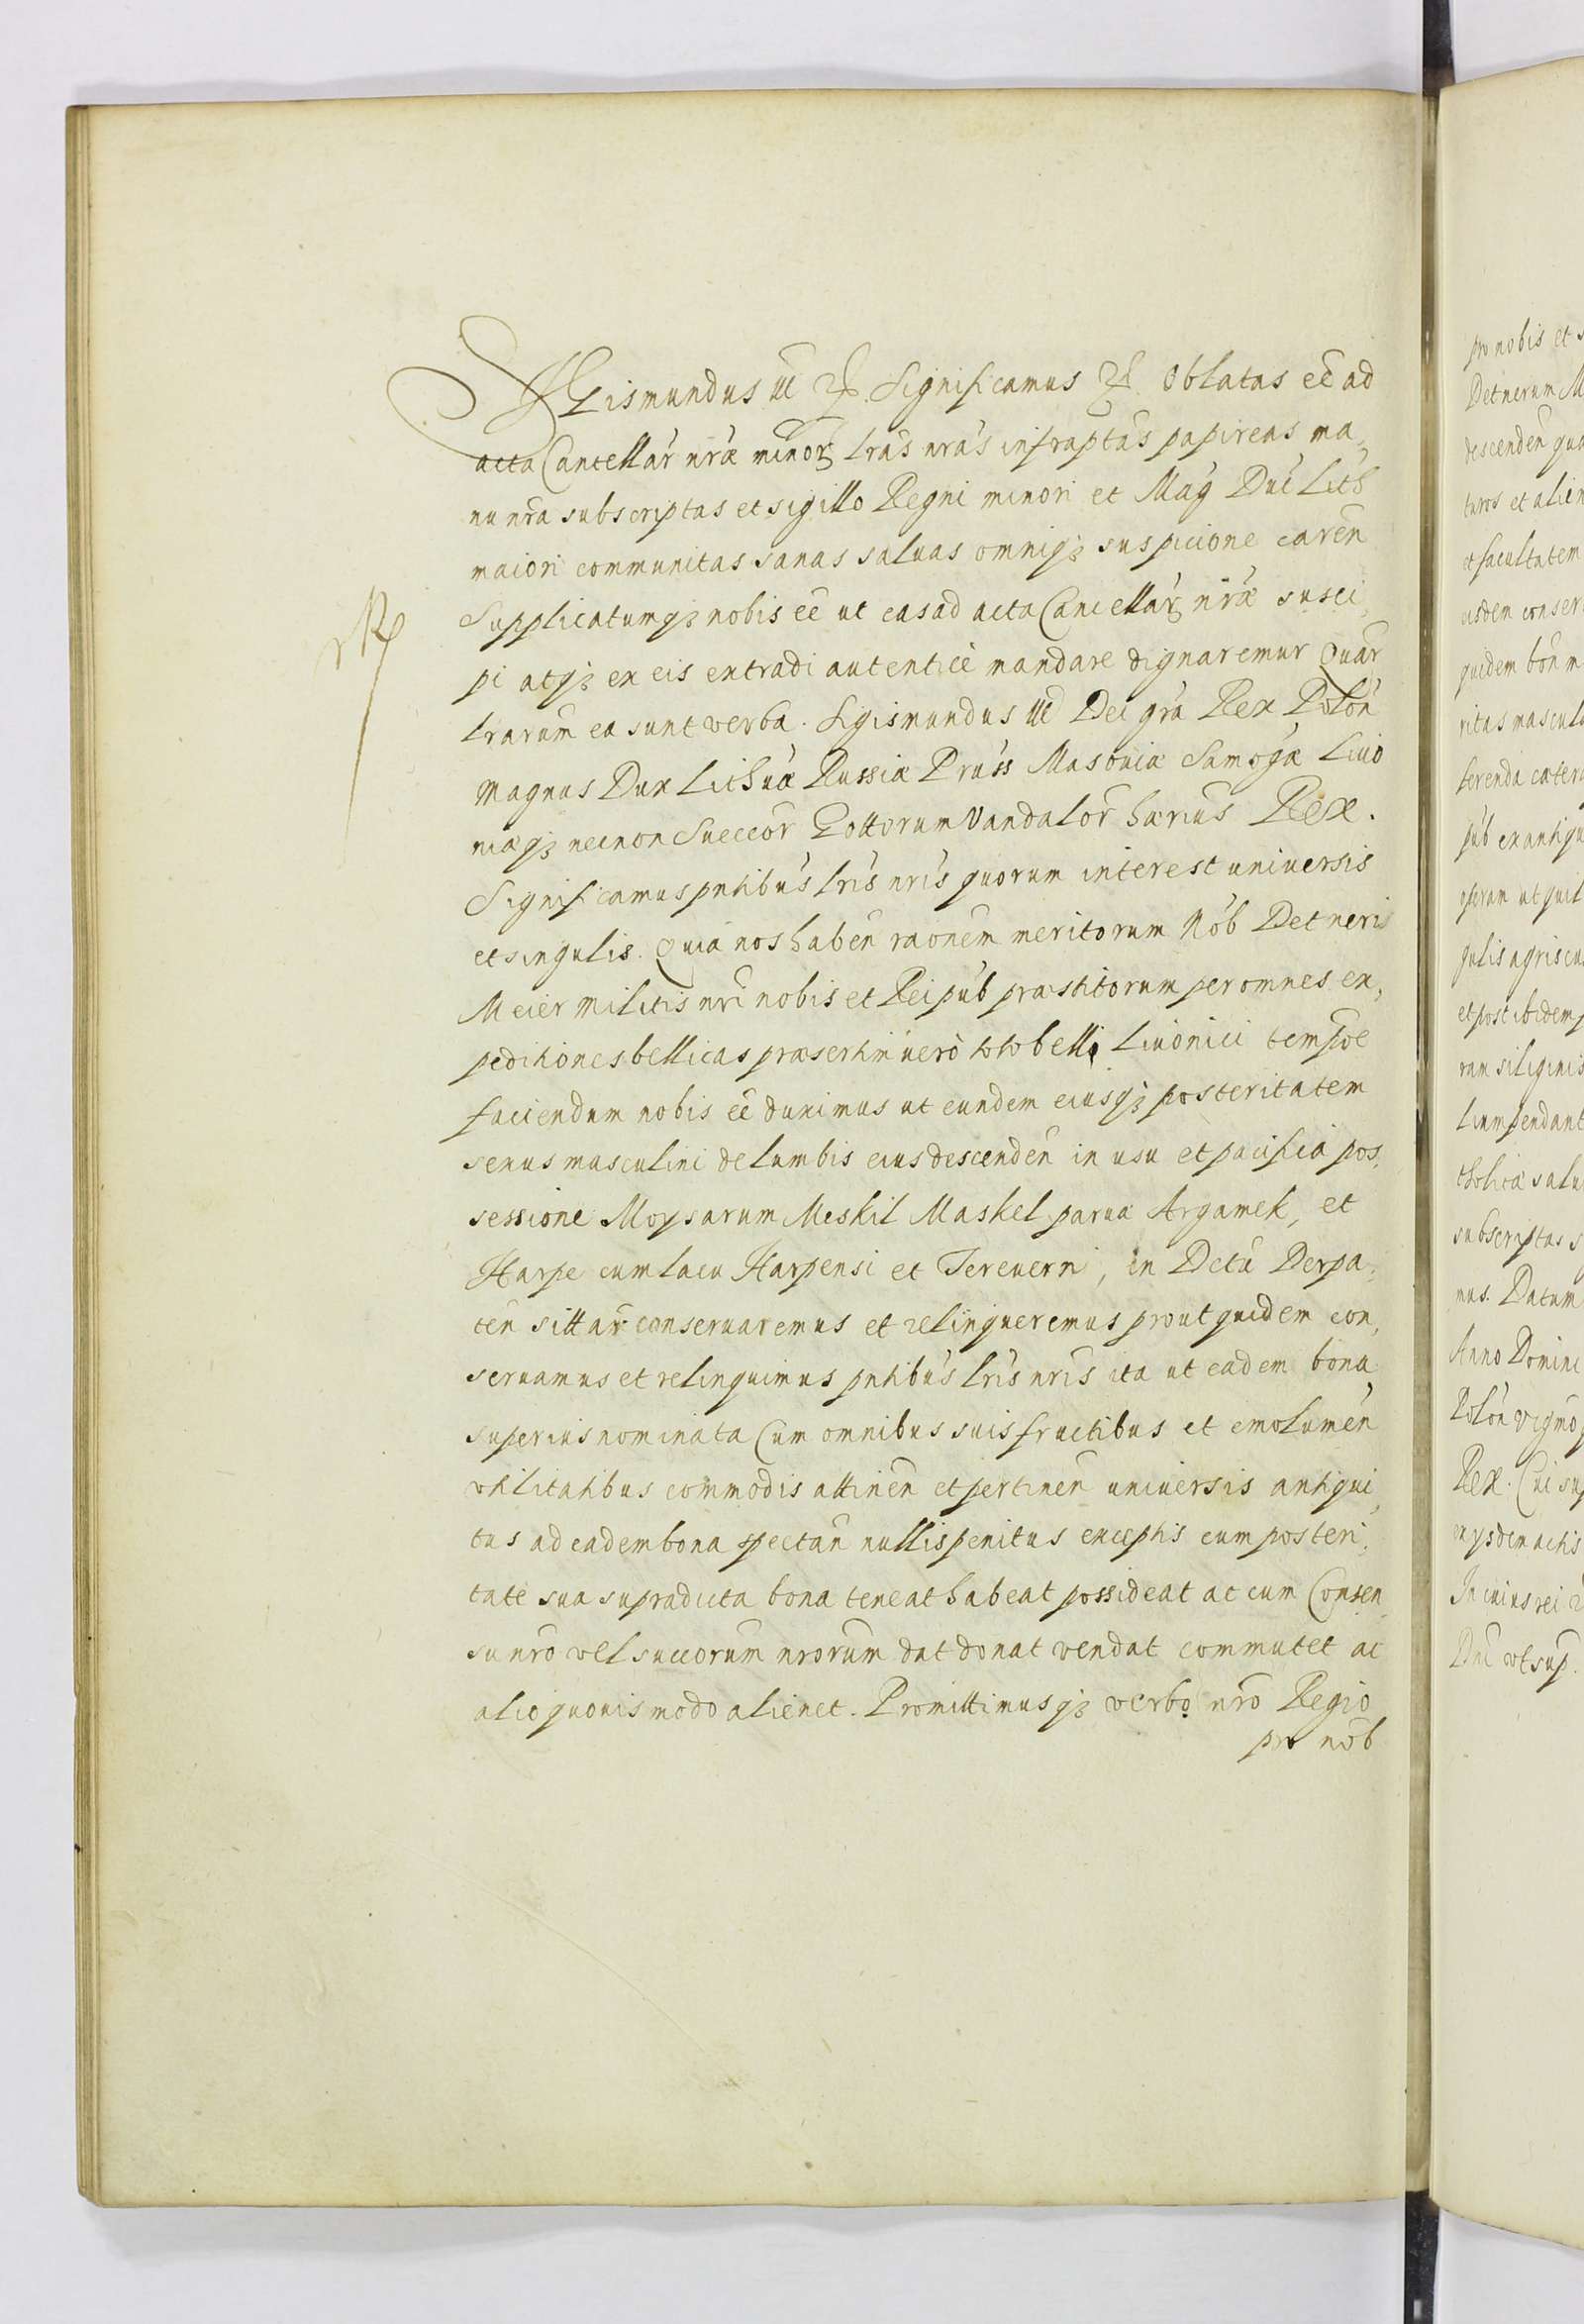 SIgismundus III etc. Significamus etc. Oblatas ee͂ ad
acta Cancellar nrae minor lras nras infraptas papireas ma,
nu nra subscriptas et sigillo Regni minori et Mag Duc Lith
maiori communitas sanas saluas omniq3 suspicione caren
Supplicatumq3 nobis ee͂ ut eas ad acta Cancellar nrae susci,
pi atq3 ex eis extradi autentice mandare dignaremur Quar
lrarum ea sunt verba. Sigismundus III Dei gra Rex Polon
Magnus Dux Lithuae Russiae Pruss Masoviae Samogae Livo
niaeq3 necnon Suecor Gottorum Vandalor haerius Rex.
Significamus pntibus lris nris quorum interest universis
et singulis. Quia nos haben raonem meritorum Nob Detneris
Meier Militis nri nobis et Reipub praestitorum per omnes ex,
peditiones bellicas praesertim vero toto belli Livonici tempoe
faciendum nobis ee͂ duximus ut eundem eiusq3 posteritatem
sexus masculini de lumbis eius descenden in usu et pacifica pos,
sessione Moysarum Meskil Maskel parva Argamek, et
Harpe cum lacu Harpensi et Terevern, in Dctu Derpa,
ten sittar conservaremus et relinqueremus prout quidem con,
servamus et relinquimus pntibus lris nris ita ut eadem bona
superius nominata Cum omnibus suis fructibus et emolumen
utilitatibus commodis attinen et pertinen universis antiqui,
tus ad eadem bona spectan nullis penitus exceptis cum posteri,
tate sua supradicta bona teneat habeat possideat ac cum Consen,
su nro vel succorum nrorum dat donat vendat commutet ac
alio quovis modo alienet. Promittimusq3 verbo nro Regio
pro nob
pro nobis et s
Detnerum M
descenden qua
turos et alien
et facultatem
iisdem conser
quidem bon m
ritas mascul
ferenda caeter
pub ex antiqu
operam ut quil
gulis agris cu
et post ibidem p
ram siliginis
lium pendant
tholicae salu
subscriptas s
mus. Datum
Anno Domini
Polon vigmo
Rex. Cui sup
ex ysdem actis
In cuius rei
Dat ut sup.